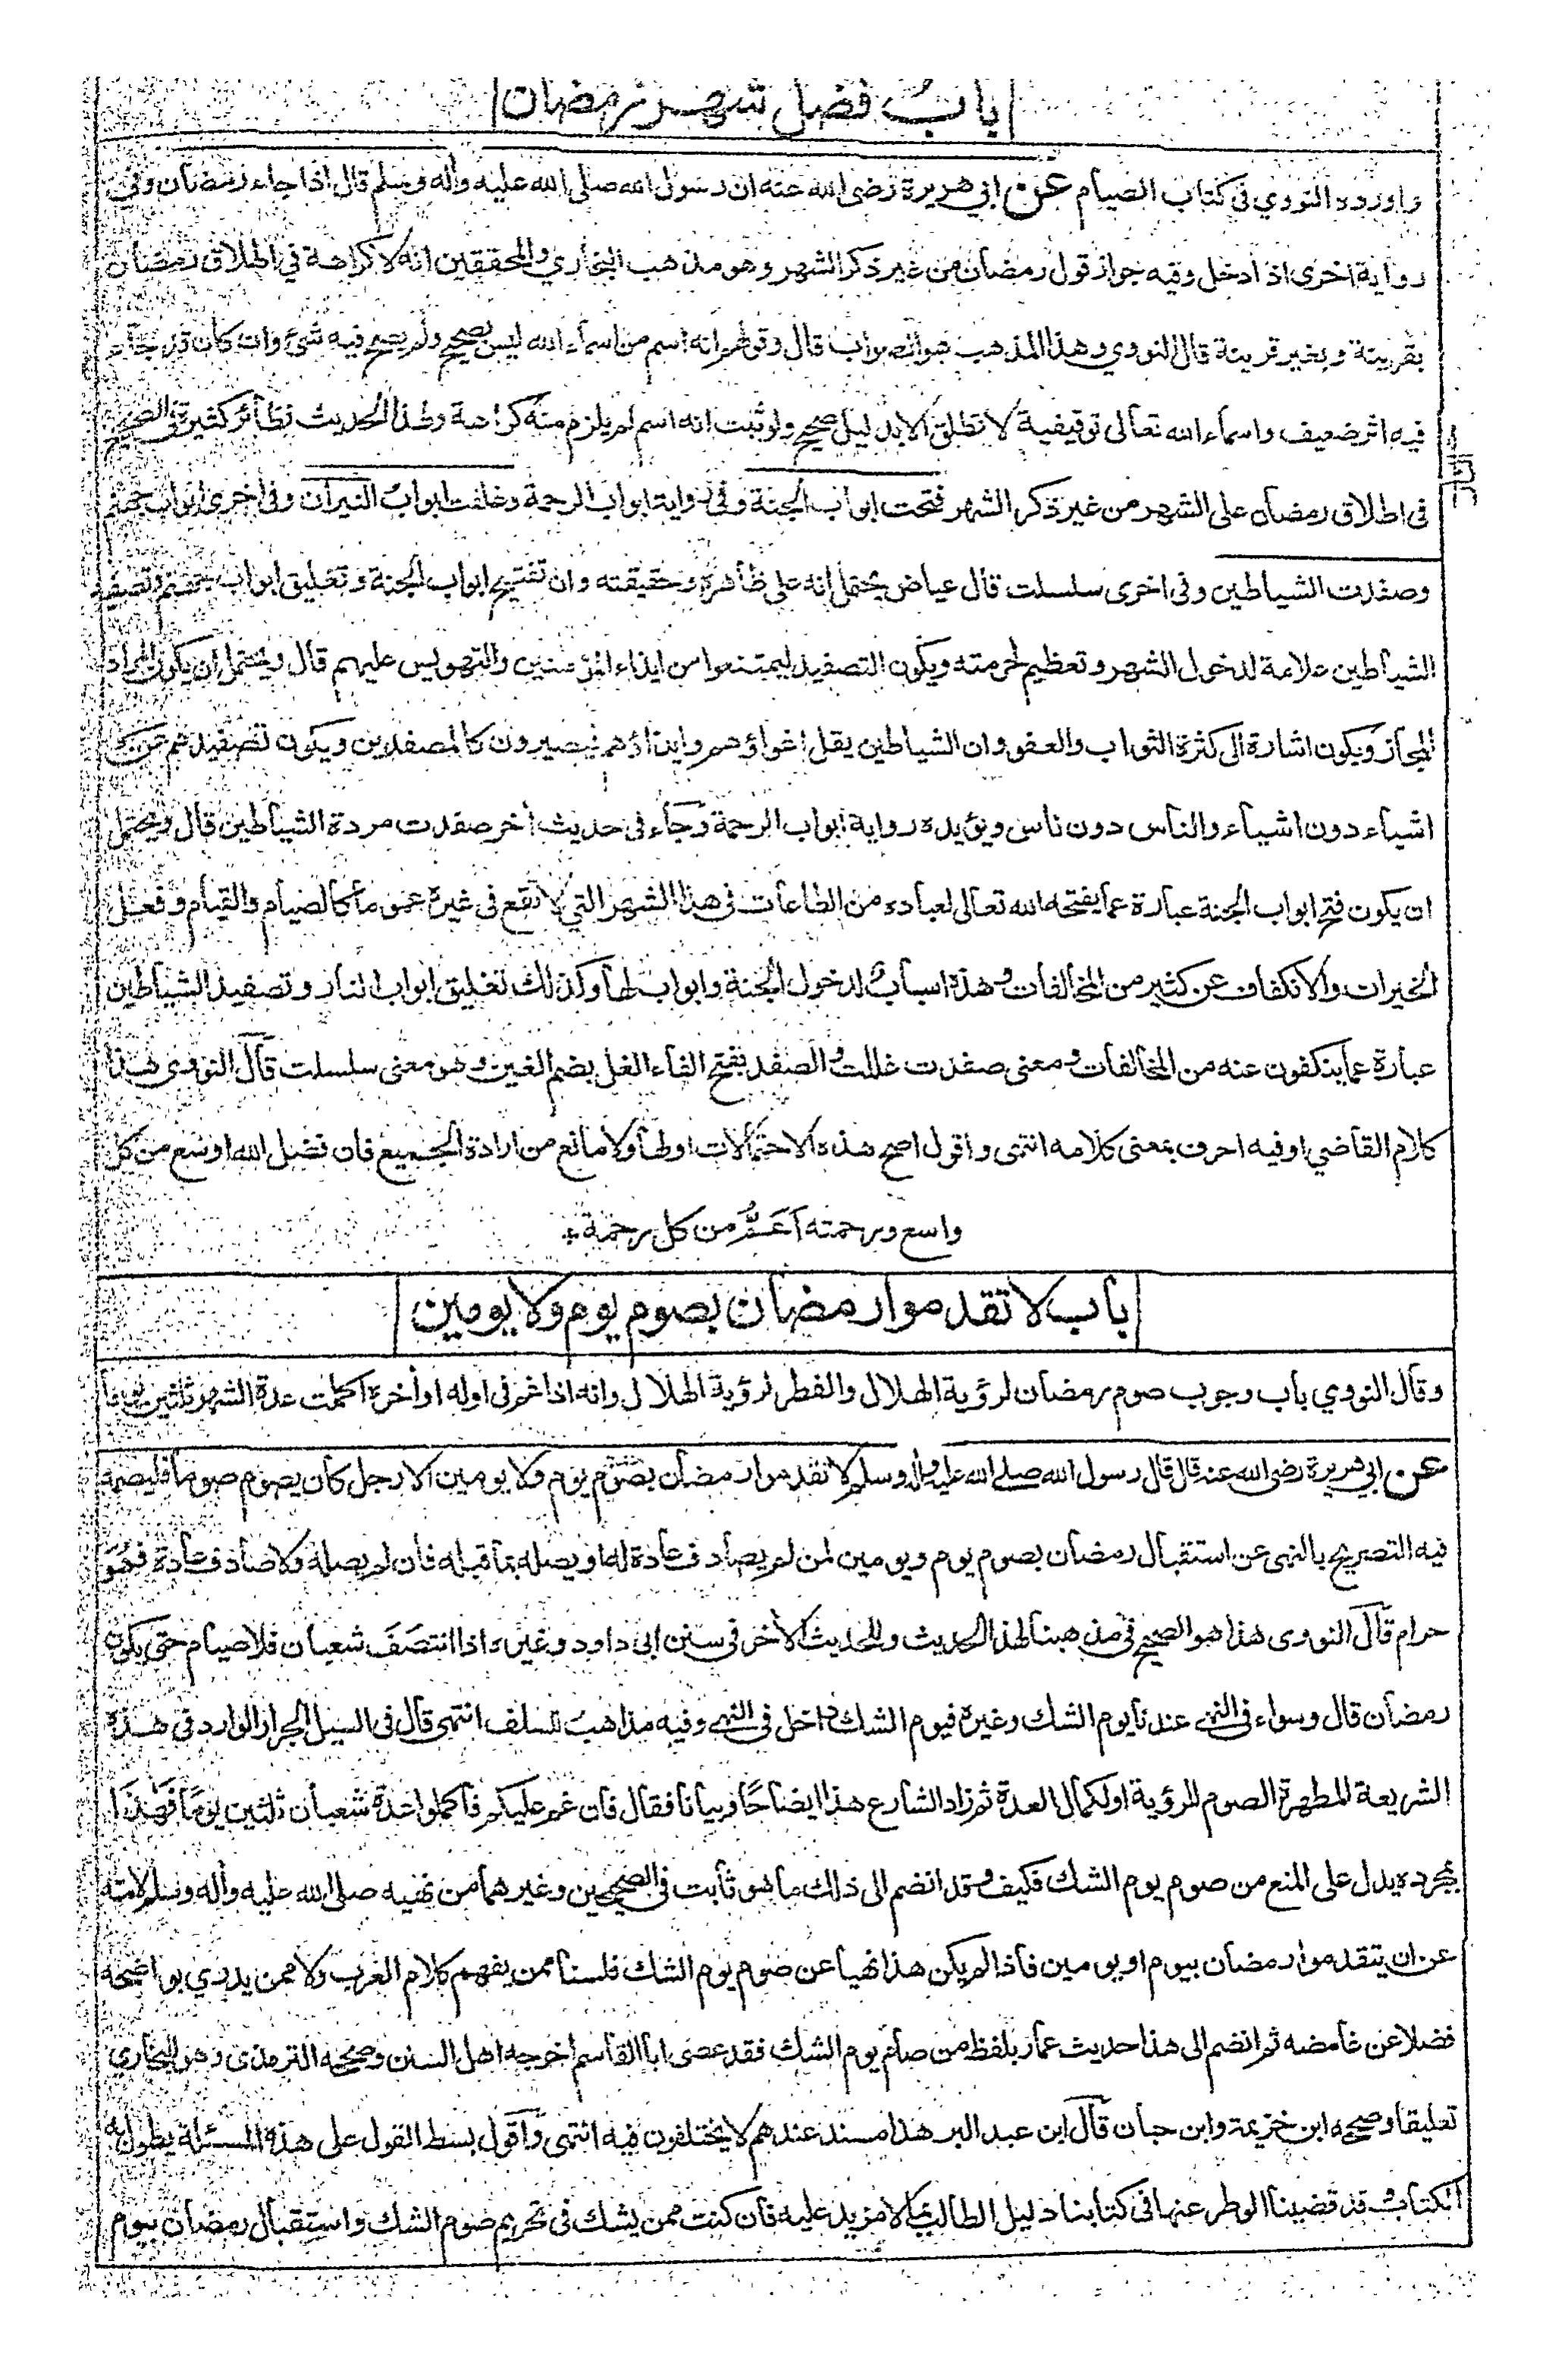 باب فضل شهر رمضان
واورده النووي في كتاب الصيام عن ابي هريرة رضي الله عنه ان رسول الله صلى الله عليه وأله وسلم قال اذا جاء رمضان وفي
رواية اخرى اذا دخل وفيه جواز قول رمضان من غير ذكر الشهر وهو مذهب البخاري والمحققين انه لا كراهة في اطلاق رمضان
بقرينة وبغير قرينة قال النووي وهذا المذهب هو الصواب قال وقولهم انه اسم من اسماء الله ليس بصحيح ولم يصح فيه شئ وان كان قد جاء
فيه اثر ضعيف واسماء الله تعالى توقيفية لا تطلق الا بدليل صحيح ولو ثبت انه اسم لم يلزم منه كراهة ولهذا الحديث نظائر كثيرة في الصحيح
في اطلاق رمضان على الشهر من غير ذكر الشهر فتحت ابواب الجنة وفي رواية ابواب الرحمة وغلقت ابواب النيران وفي اخرى ابواب جهنم
وصفدت الشياطين وفي اخرى سلسلت قال عياض يحتمل انه على ظاهره وحقيقته وان تفتيح ابواب الجنة وتغليق ابواب جهنم وتصفيد
الشياطين علامة لدخول الشهر وتعظيم لحرمته ويكون التصفيد ليمتنعوا من ايذاء المؤمنين والتهويس عليهم قال ويحتمل ان يكون المراد
المجاز ويكون اشارة الى كثرة الثواب والعفو وان الشياطين يقل اغواؤهم وايذاؤهم فيصيرون كالمصفدين ويكون تصفيدهم عن
اشياء دون اشياء والناس دون ناس ويؤيده رواية ابواب الرحمة وجاء في حديث أخر صفدت مردة الشياطين قال ويحتمل
ان يكون فتح ابواب الجنة عبارة عما يفتحه الله تعالى لعباده من الطاعات في هذا الشهر التي لا تقع في غيره عموما كالصيام والقيام وفعل
الخيرات والانكفاف عن كثير من المخالفات وهذه اسباب لدخول الجنة وابواب لها وكذلك تغليق ابواب النار وتصفيد الشياطين
عبارة عما ينكفون عنه من المخالفات ومعنى صفدت غللت والصفد بفتح الفاء الغل بضم الغين وهو معنى سلسلت قال النووي هذا
كلام القاضي او فيه احرف بمعنى كلامه انتهى واقول اصح هذه الاحتمالات اولها ولا مانع من ارادة الجميع فان فضل الله اوسع من كل
واسع ورحمته اعم من كل رحمة *
باب لا تقدموا رمضان بصوم يوم ولا يومين
وقال النووي باب وجوب صوم رمضان لرؤية الهلال والفطر لرؤية الهلال وانه اذا غم في اوله او أخره اكملت عدة الشهر ثلثين يوما
عن ابي هريرة رضي الله عنه قال قال رسول الله صلى الله عليه وأله وسلم لا تقدموا رمضان بصوم يوم ولا يومين الا رجل كان يصوم صوما فليصمه
فيه التصريح بالنهي عن استقبال رمضان بصوم يوم ويومين لمن لم يصادف عادة له او يصله بما قبله فان لم يصله ولا صادف عادة فهو
حرام قال النووي هذا هو الصحيح في مذهبنا لهذا الحديث وللحديث الأخر في سنن ابي داود وغيره اذا انتصف شعبان فلا صيام حتى يكون
رمضان قال وسواء في النهي عندنا يوم الشك وغيره فيوم الشك داخل في النهي وفيه مذاهب للسلف انتهى قال في السيل الجرار الوارد في هذه
الشريعة المطهرة الصوم للرؤية او لكمال العدة ثم زاد الشارع هذا ايضاحا وبيانا فقال فان غم عليكم فاكملوا عدة شعبان ثلثين يوما فهذا
بمجرده يدل على المنع من صوم يوم الشك فكيف وقد انضم الى ذلك ما هو ثابت في الصحيحين وغيرهما من نهيه صلى الله عليه وأله وسلم لامته
عن ان يتقدموا رمضان بيوم او يومين فاذا لم يكن هذا نهيا عن صوم يوم الشك فلسنا ممن يفهم كلام العرب ولا ممن يدري بواضحه
فضلا عن غامضه ثم انضم الى هذا حديث عمار بلفظ من صام يوم الشك فقد عصى ابا القاسم اخرجه اهل السنن وصححه الترمذي وهو للبخاري
تعليقا وصححه ابن خزيمة وابن حبان قال ابن عبد البر هذا مسند عندهم لا يختلفون فيه انتهى واقول بسط القول على هذه المسئلة يطول به
الكتاب وقد قضينا الوطر عنها في كتابنا دليل الطالب بما لا مزيد عليه فان كنت ممن يشك في تحريم صوم الشك واستقبال رمضان بيوم